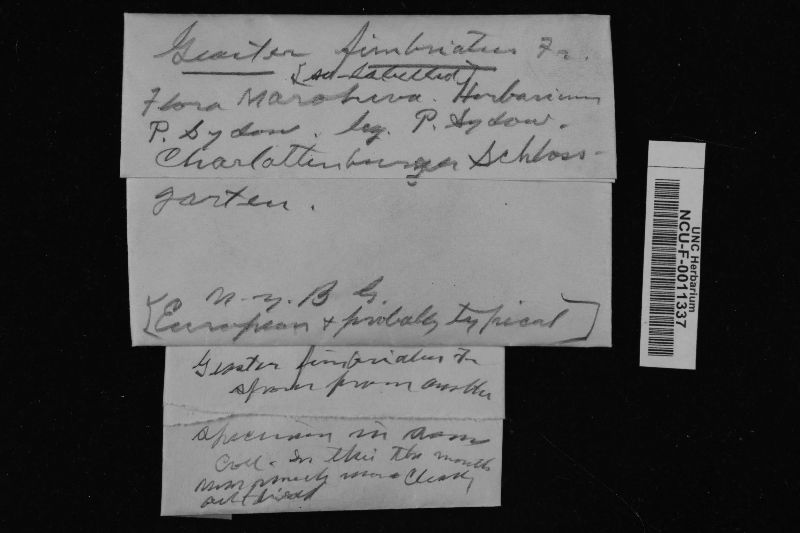 Geaster fimbriatus Fr.
[so-labelled]
Flora Marchica. Herbarium
P. Sydow. leg. P. Sydow.
Charlottenburger Schloss-
garten.
N. Y. B. G.
[European & probably typical]
Geaster fimbriatus Fr
spores from another
specimen in same
Coll. In this the mouth
was more clearly
UNC Herbarium
NCU-F-0011337